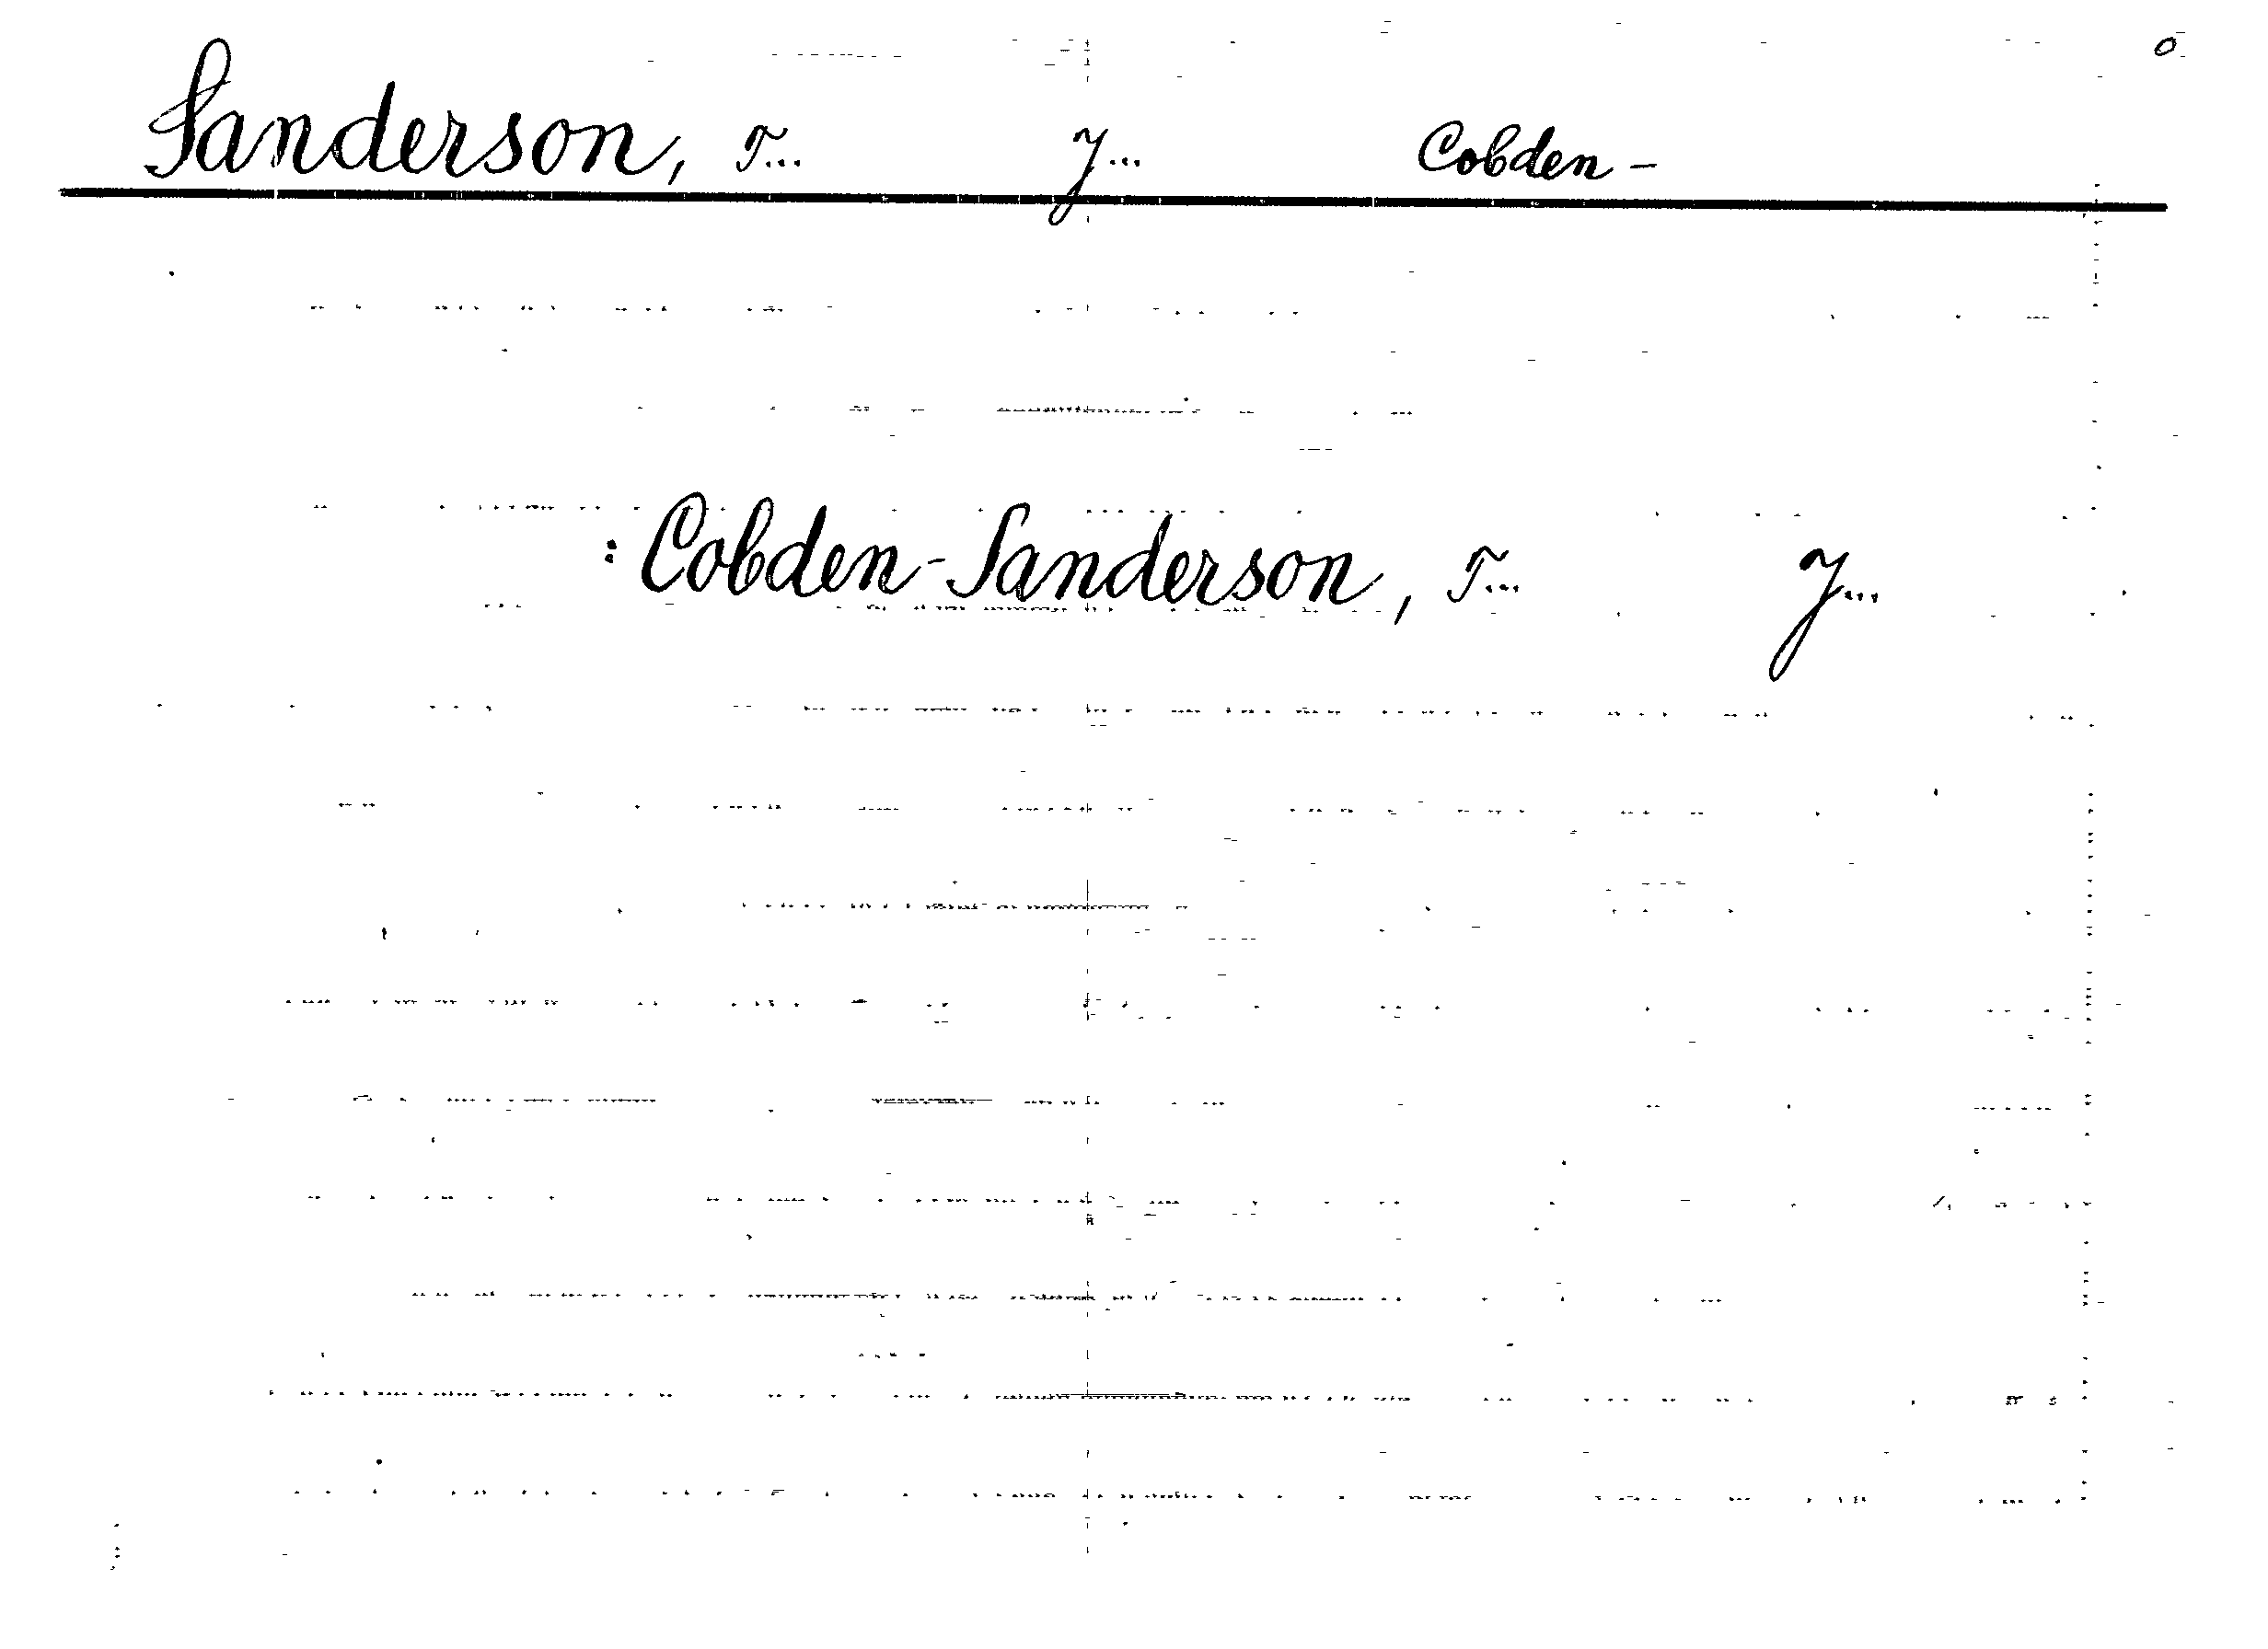 Sanderson, T... J... Cobden-
: Cobden-Sanderson, T... J...